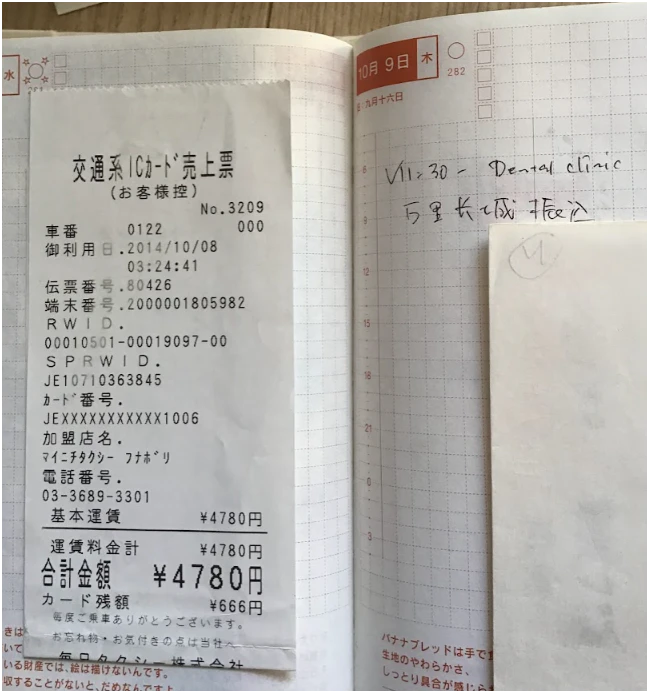 水
交通系ICカード売上票
(お客様控)
No.3209
車番 0122 000
御利用日.2014/10/08
03:24:41
伝票番号.80426
端末番号.2000001805982
RWID.
00010501-00019097-00
SPRWID.
JE10710363845
カード番号.
JEXXXXXXXXXXX1006
加盟店名.
マイニチタクシー フナボリ
電話番号.
03-3689-3301
基本運賃 ¥4780円
運賃料金計 ¥4780円
合計金額 ¥4780円
カード残額 ¥666円
毎度ご乗車ありがとうございます。
お忘れ物・お気付きの点は当社へ
毎日タクシー株式会社
きは
いて
いる財産では、絵は描けないんです。
収することがないと、だめなんですよ
10月 9日 木
282
九月十六日
6
9
12
15
18
21
0
3
11:30 - Dental clinic
万里長城 振込
M
バナナブレッドは手で
生地のやわらかさ、
しっとり具合が感じら